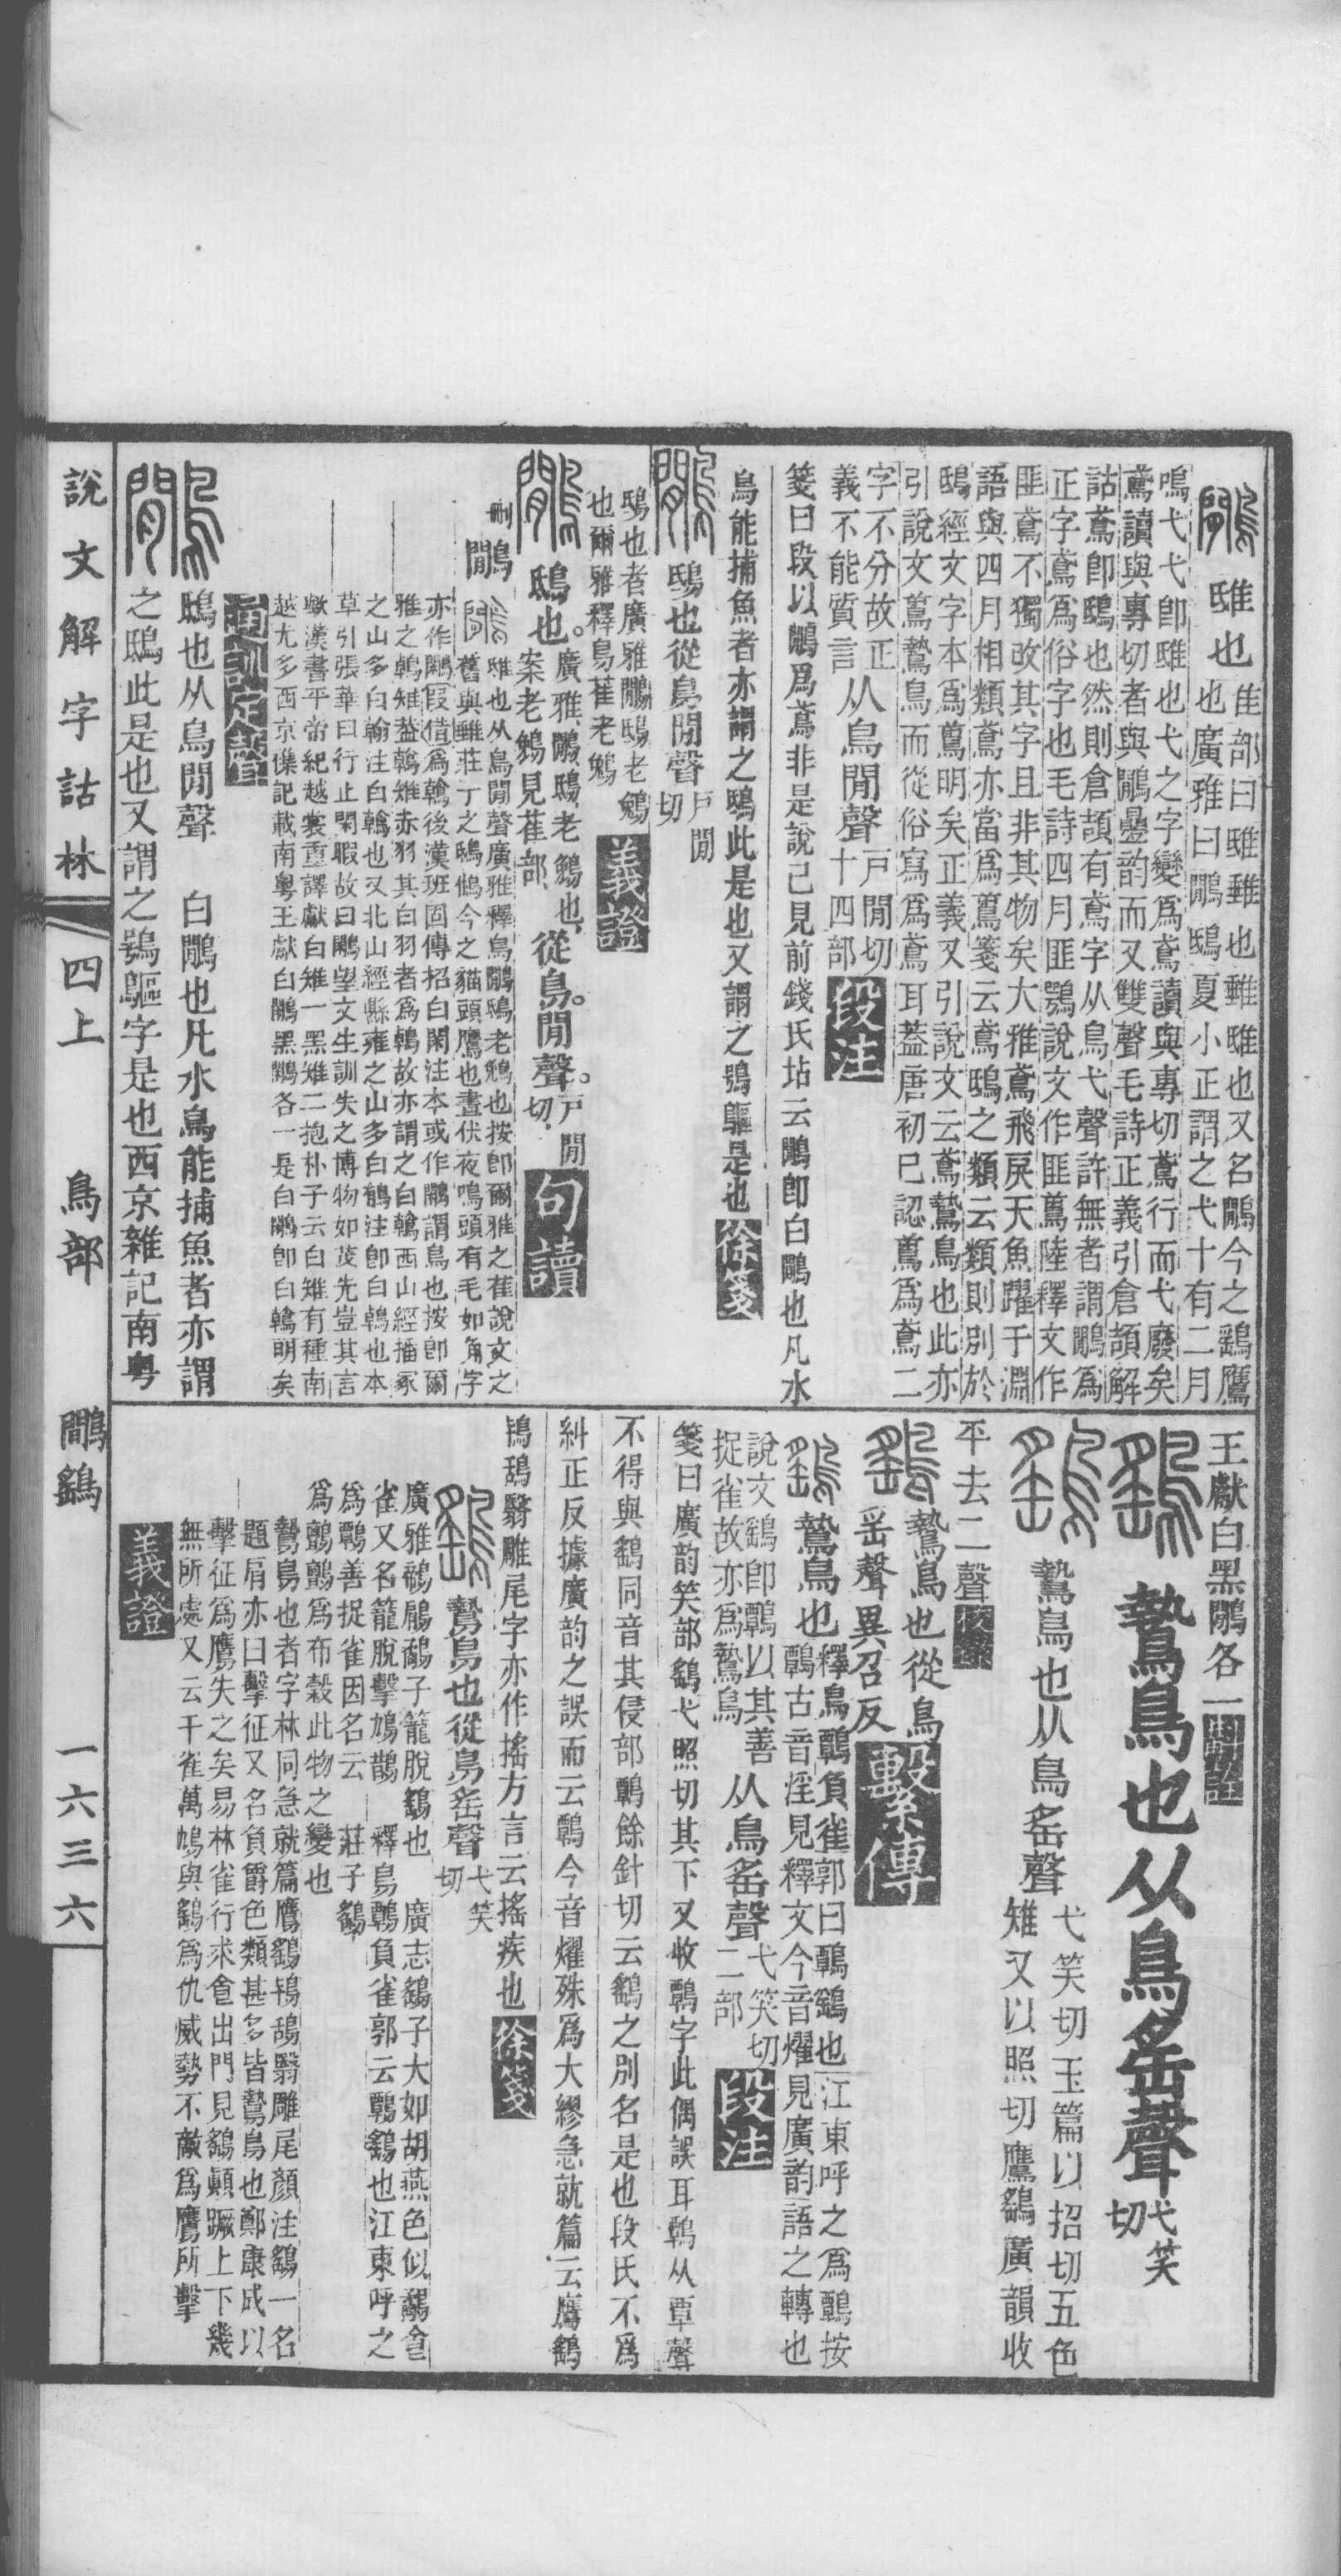 鷳 鴟也
隹部曰雖也雖鴟也又名鷳今之鷂鷹
也廣雅曰鷳鴟夏小正謂之弋十有二月
鳴弋弋卽鴟也弋之字變爲鳶讀與專切鳶行而弋廢矣
鳶讀與專切者與鷳曡韵而又雙聲毛詩正義引倉頡解
詁鳶卽鴟也然則倉頡有鳶字从鳥弋聲許無者謂鷳爲
正字鳶爲俗字也毛詩四月匪鶚說文作匪䳒陸釋文作
匪鳶不獨改其字且非其物矣大雅鳶飛戾天魚躍于淵
語與四月相類鳶亦當爲䳒箋云鳶鴟之類云類則別於
鴟經文字本爲䳒明矣正義又引說文云鳶鷙鳥也此亦
引說文䳒鷙鳥而從俗寫爲鳶耳蓋唐初已認䳒爲鳶二
字不分故正
義不能質言
从鳥閒聲
戸閒切
十四部
段注
箋曰段以鷳爲鳶非是說已見前錢氏坫云鷳卽白鷳也凡水
鳥能捕魚者亦謂之鴟此是也又謂之鶚鷗是也 徐箋
鷳 鴟也從鳥閒聲 戸閒切
鴟也者廣雅鷳鴟老鵵
也爾雅釋鳥萑老鵵
義證
鷳 鴟也。廣雅鷳鴟、老鵵也、案老鵵見萑部、從鳥。閒聲。戸閒切. 句讀
刪 鷳 鷳
鴟也从鳥閒聲廣雅釋鳥鷳鴟老鵵也按卽爾雅之萑說文之
舊與雖莊子之鴟鵂今之貓頭鷹也晝伏夜鳴頭有毛如角字
亦作鷴叚借爲鶾後漢班固傳招白閑注本或作鷴謂鳥也按卽爾
雅之鶾雉蓋鶾雉赤羽其白羽者爲鶾故亦謂之白鶾西山經嶓冢
之山多白翰注白鶾也又北山經縣雍之山多白鵫注卽白鶾也本
草引張華曰行止閑暇故曰鷴望文生訓失之博物如茂先豈其言
歟漢書平帝紀越裳重譯獻白雉一黑雉二抱朴子云白雉有種南
越尤多西京襍記載南粤王獻白鷴黑鷴各一是白鷴卽白鶾明矣
通訓定聲
鷳 鴟也从鳥閒聲 白鷳也凡水鳥能捕魚者亦謂
之鴟此是也又謂之鶚鷗字是也西京雜記南粤
王獻白黑鷳各一 斠詮
鷂 鷙鳥也从鳥䍃聲 弋笑切
鷂 鷙鳥也从鳥䍃聲
弋笑切玉篇以招切五色
雉又以照切鷹鷂廣韻收
平去二聲 校錄
鷂 鷙鳥也從鳥
䍃聲異召反
繫傳
鷂 鷙鳥也
釋鳥鷣負雀郭曰鷣鷂也江東呼之爲鷣按
鷣古音淫見釋文今音燿見廣韵語之轉也
說文鷂卽鷣以其善
捉雀故亦爲鷙鳥
从鳥䍃聲
弋笑切
二部
段注
箋曰廣韵笑部鷂弋照切其下又收鷣字此偶誤耳鷣从覃聲
不得與鷂同音其侵部鷣餘針切云鷂之別名是也段氏不爲
糾正反據廣韵之誤而云鷣今音燿殊爲大繆急就篇云鷹鷂
鴇鴰翳雕尾字亦作搖方言云搖疾也 徐箋
鷂 鷙鳥也從鳥䍃聲 弋笑切
廣志鷂子大如胡燕色似鷂食
雀又名籠脫擊鳩鵲 釋鳥鷣負雀郭云鷣鷂也江東呼之
爲鷣善捉雀因名云 莊子鷂
爲鸇鸇爲布穀此物之變也
鷙鳥也者字林同急就篇鷹鷂鴇鴰翳雕尾顏注鷂一名
題肩亦曰擊征又名負爵色類甚多皆鷙鳥也鄭康成以
擊征爲鷹失之矣易林雀行求食出門見鷂顚蹶上下幾
無所處又云千雀萬鳩與鷂爲仇威勢不敵爲鷹所擊
義證
說文解字詁林 四上 鳥部 鷳鷂 一六三六